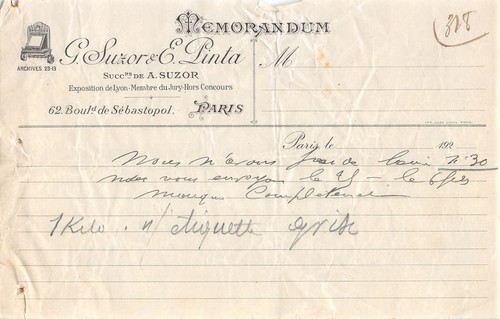 MEMORANDUM
318
G. Suzor & E. Pinta
M
ARCHIVES 23-13
SUCCRS DE A. SUZOR
Exposition de Lyon - Membre du Jury - Hors Concours
62. Boulд de Sébastopol, PARIS
Paris le 192
Nous n'avons pas de N° 30
nous vous envoyons le 25 - le
manque Complètement
1 Kilo n/ étiquette grise